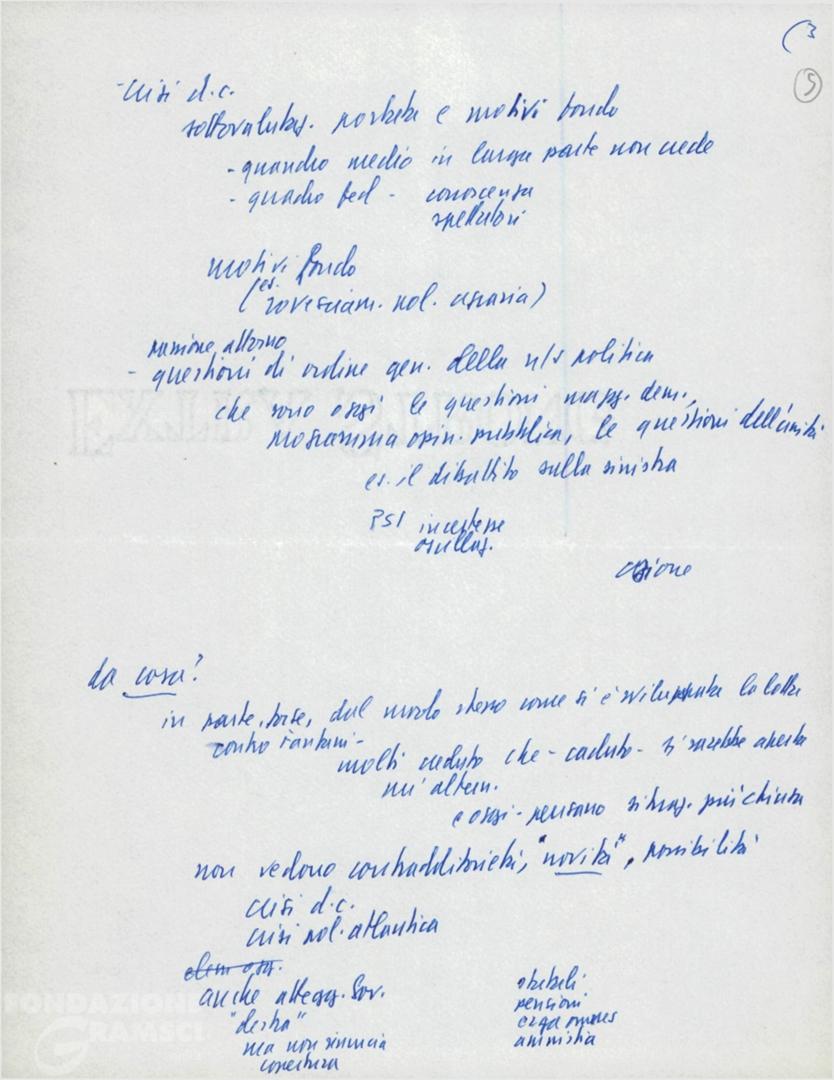 (3
5
- crisi d.c.
sottovalutaz. portata e motivi fondo
- quandro medio in larga parte non crede
- quadro fed - conoscenza
spettatori
motivi fondo
(es. rovesciam. pol. agraria)
passione attorno
- questioni di ordine gen. della n/s politica
che sono oggi le questioni magg. dem.,
programma opin. pubblica, le questioni dell'unità
es. il dibattito sulla sinistra
PSI incertezze
oscillaz.
azione
da cosa?
in parte, forse, dal modo stesso come si è sviluppata la lotta
contro Fanfani -
molti creduto che - caduto - si sarebbe aperta
un'altern.
e oggi - pensano situaz. più chiusa
non vedono contradditorietà, "novità", possibilità
crisi d.c.
crisi pol. atlantica
anche attegg. Gov.
"destra"
ma non rinuncia
copertura
statali
pensioni
erga omnes
amnistia
FONDAZIONE
GRAMSCI